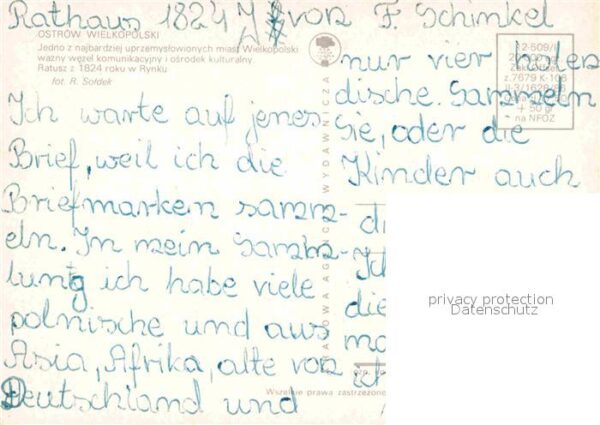 Rathaus 1824 J. von F. Schinkel
OSTRÓW WIELKOPOLSKI
Jedno z najbardziej uprzemysłowionych miast Wielkopolski
ważny węzeł komunikacyjny i ośrodek kulturalny
Ratusz z 1824 roku w Rynku
fot. R. Sołdek
Ich warte auf jenes
Brief, weil ich die
Briefmarken samm-
eln. In mein Samm-
lung ich habe viele
polnische und aus
Asia, Afrika, alte von
Deutschland und
nur vier holen
dische. Sammeln
Sie, oder die
Kinder auch
di
Ich
die
ma
ich
KRAJOWA AGENCJA WYDAWNICZA
z. 7679 K-108
na NFOZ
Wszelkie prawa zastrzeżone
privacy protection
Datenschutz